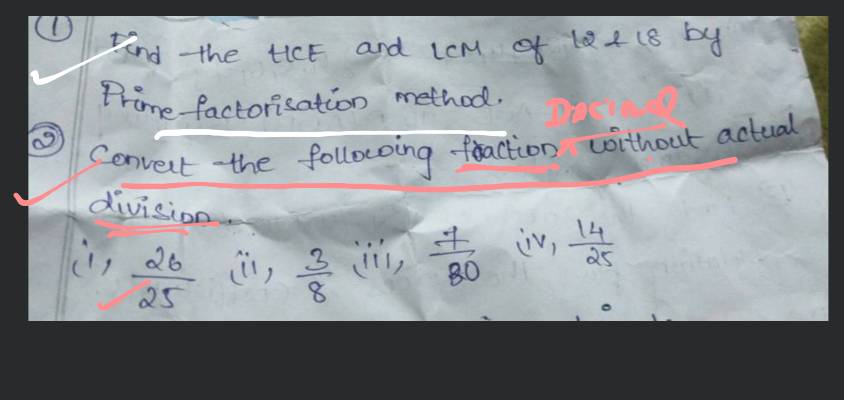 (1) Find the HCF and LCM of 12 & 18 by
Prime factorisation method.
Decimal
(2) Convert the following fraction without actual
division.
(i), 26/25 (ii, 3/8 (iii, 7/80 (iv, 14/25